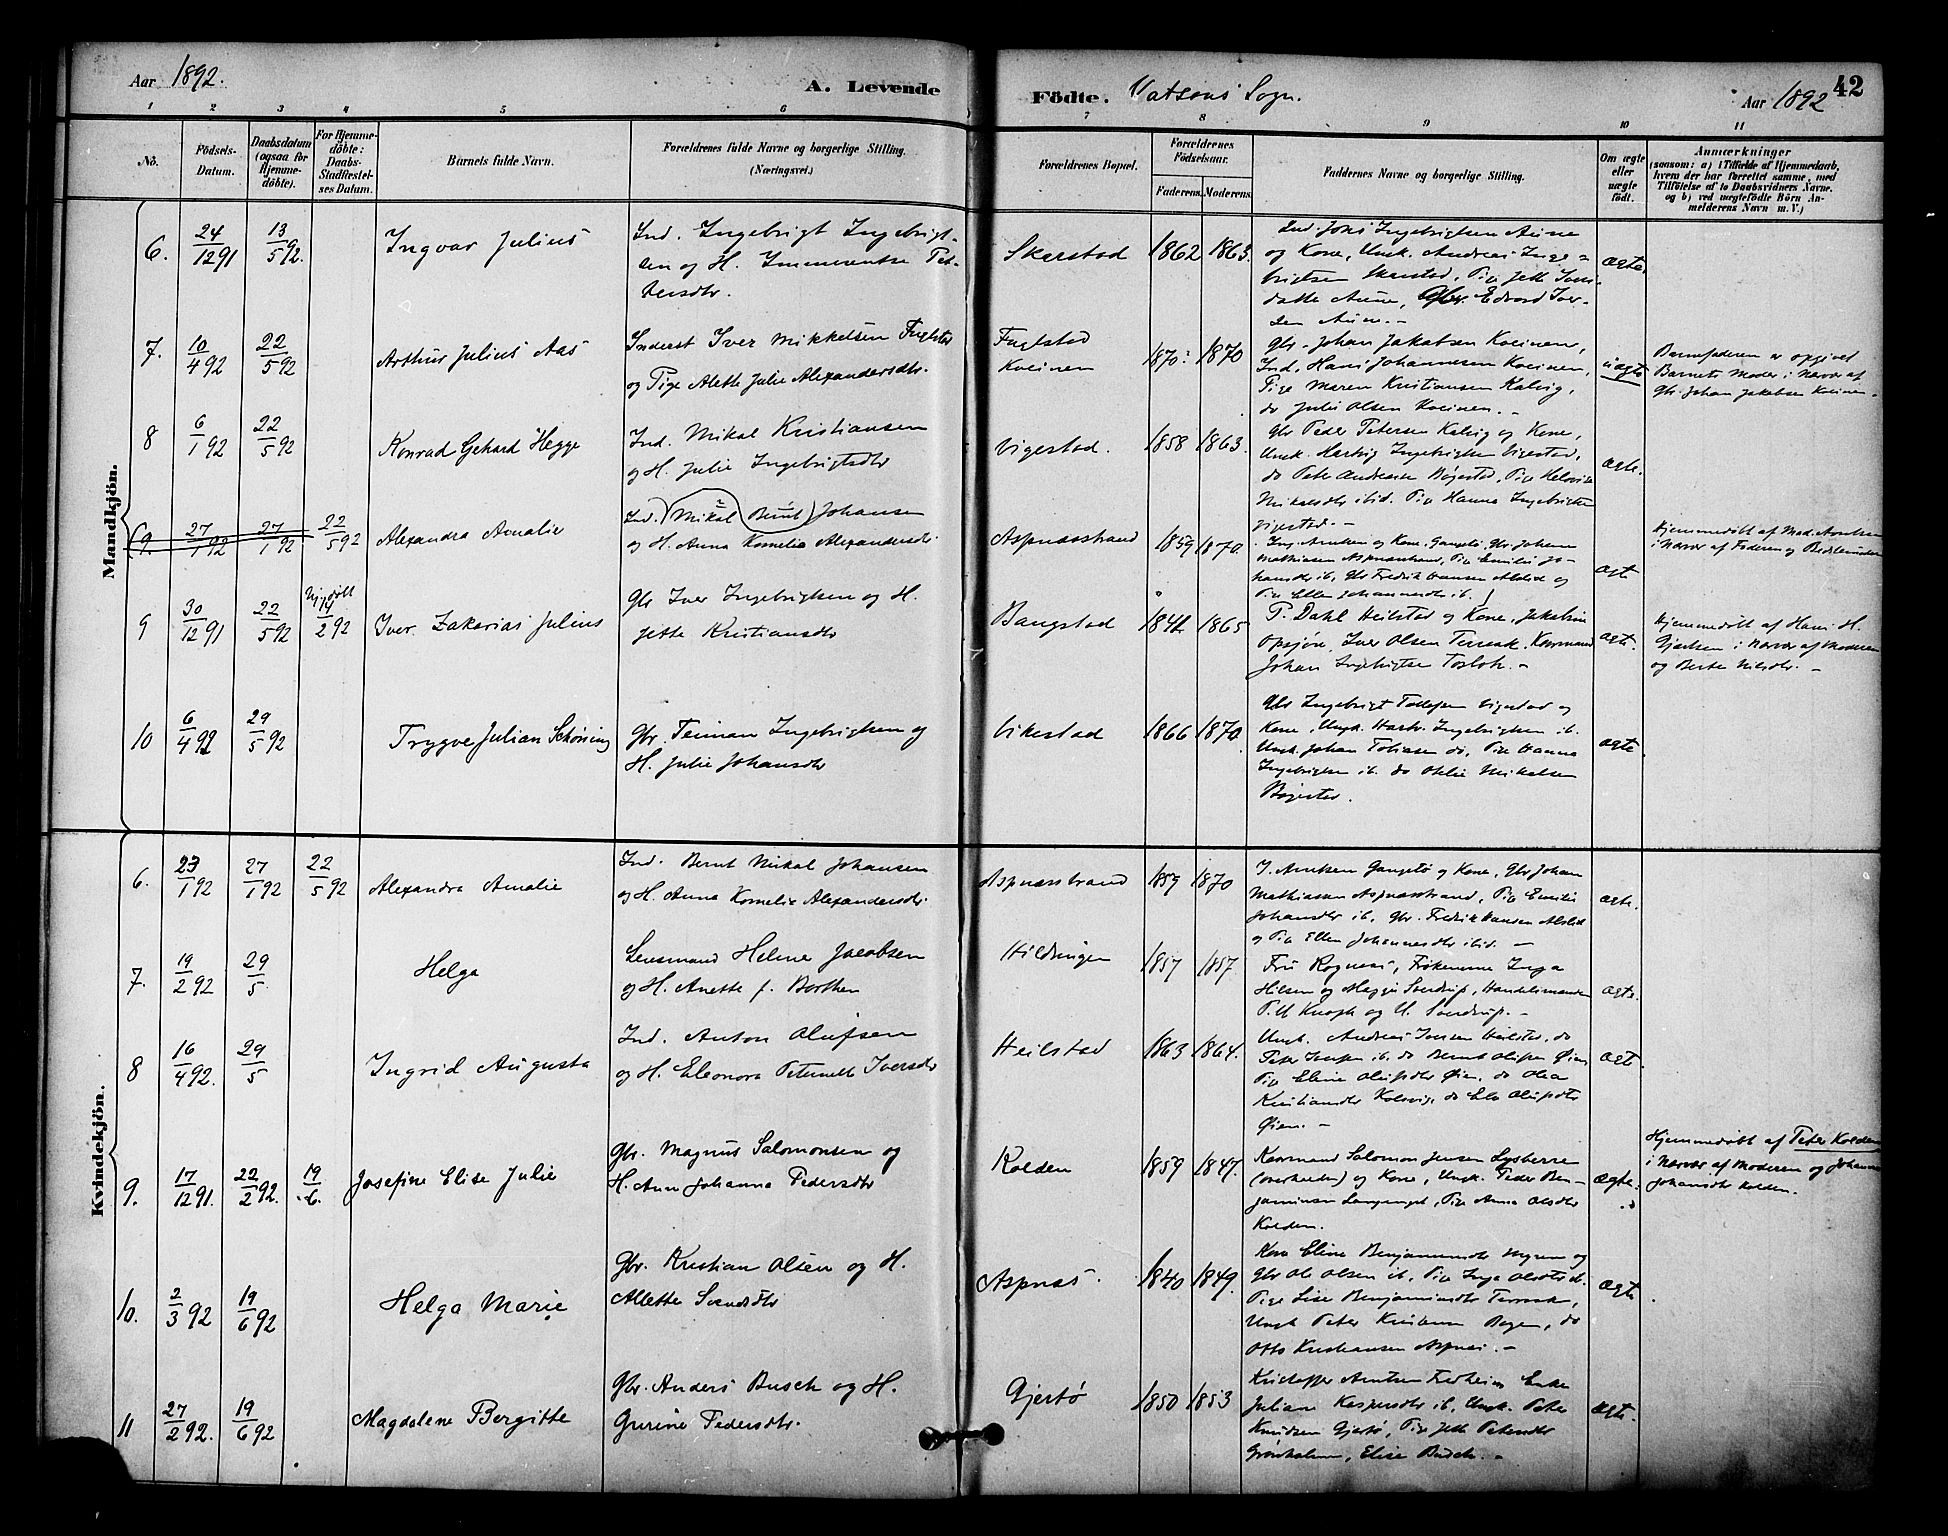 Aar 1892.
A. Levende
Födte. Vatsens Sogn.
Aar 1892
42
1 2 3 4 5 6 7 8 9 10 11
No.
Födsels-
Datum.
Daabsdatum
(ogsaa for
Hjemme-
döbte).
For Hjemme-
döbte:
Daabs-
Stadfæstel-
ses Datum.
Barnets fulde Navn.
Forældrenes fulde Navne og borgerlige Stilling.
(Næringsvei.)
Forældrenes Bopæl.
Forældrenes
Födselsaar.
Faderens. Moderens.
Faddernes Navne og borgerlige Stilling.
Om ægte
eller
uægte
födt.
Anmærkninger
(saasom: a) i Tilfælde af Hjemmedaab,
hvem der har forrettet samme, med
Tilföielse af to Daabsvidners Navne.
og b) ved uægtefödte Börn An-
melderens Navn m. V.)
Mandkjön.
6. 24/12 91 13/5 92. Ingvar Julius
Ind. Ingebrigt Ingebrigt-
sen og H. Immerentse Pet-
tersdtr.
Skarstad 1862 1863.
og Kone, Ungk. Andreas Inge-
brigtsen Skarstad, Pige Jette
datte Aune, Gbr. Edvard Iver-
sen Aune.-
ægte
7. 10/4 92 22/5 92 Arthur Julius Aas
Inderst Iver Mikkelsen Fuglstad
og Pige Alette Julie Alexandersdtr.
Fuglstad
Kveinen
1870: 1870
Gbr. Johan Jakobsen Kveinen,
Ind. Hans Johannesen Kveinen,
Pige Maren Kristiansen Kalvig,
do Julie Olsen Kveinen.-
uægte
Barnefaderen er opgivet
Barnets Moder i Nærvær af
Gbr. Johan Jakobsen Kveinen.
8 6/1 92 22/5 92 Konrad Gehard Hegge
Ind. Mikal Kristiansen
og H. Julie Ingebrigtsdtr
Vigestad. 1858 1863.
Gbr Peder Petersen Kalvig og Kone,
Ungk. Hartvig Ingebrigtsen Vigestad,
do Peter Andreasen Bøgestad, Pige
Mikalsdtr ibid. Pige Hanna Ingebrigtsen
Vigestad.-
ægte.
9. 27/1 92 27/1 92 22/5 92 Alexandra Amalie
Ind. Mikal Bernt Johansen
og H. Anna Kornelia Alexandersdtr
Aspnæsstrand 1859 1870.
og Kone, Gangstø, Gbr. Johan
Mathiassen Aspnæsstrand, Pige Emilie Jo-
hansdtr ib., Gbr Fredrik Hansen Alstad og
Pige Ellen Johannesdtr ib.
ægte
Hjemmedøbt af Mad. Arntsen
i Nærvær af Faderen og
9 30/12 91 22/5 92 Hj.døbt 14/2 92 Iver Zakarias Julius
Gbr Iver Ingebrigtsen og H.
Jette Kristiansdtr
Bangstad 1841 1865
P. Dahl Heilstad og Kone, Jakobine
Opsjøn, Iver Olsen Terraak, Kaarmand
Johan Ingebrigtsen
ægte.
Hjemmedøbt af Hans H.
Gjertsen i Nærvær af Moderen
og Berte Nilsdtr. -
10 6/4 92 29/5 92 Trygve Julian Schøning
Gbr. Teiman Ingebrigtsen og
H. Julie Johansdtr
Vikestad 1866 1870.
Gbr Ingebrigt Tollefsen Vigestad og
Kone, Ungk. Hartv. Ingebrigtsen ib.
Ungk. Johan Tobiasen do, Pige Hanna
Ingebrigtsen ib. do Mikalsen
Bøgestad.
ægte
Kvindekjön.
6. 23/1 92 27/1 92 22/5 92 Alexandra Amalie
Ind. Bernt Mikal Johansen
og H. Anna Kornelia Alexandersdtr.
Aspnæsstrand 1859 1870
J. Arntsen Gangstø og Kone, Gbr Johan
Mathiassen Aspnæsstrand, Pige Emilie
Johansdtr ib, Gbr. Fredrik Hansen Alstad
og Pige Ellen Johannesdtr ibid. -
ægte.
7. 19/2 92 29/5 Helga
Lensmand Helmer Jacobsen
og H. Anette f. Borthen
Hildringen 1857 1857
Fru Rognæs, Frøkenerne Inga
Nilsen og Magga Sverdrup, Handelsmændene
P. M Knoph og U. Sverdrup.-
ægte.
8 16/4 92. 29/5 Ingrid Augusta
Ind. Anton Olufsen
og H. Eleonora Peternelle Iversdtr
Heilstad 1863 1864.
Ungk. Andreas Iversen Heilstad, do
Peter Iversen ib. do Bernt Olufsen Øien,
Pige Eline Olufsdtr Øien, do Olea
Kristiansdtr Kolsvig, do Olufsdtr
Øien.-
ægt.
9. 17/12 91. 22/2 92. 19/6. Josefine Elise Julie
Gbr. Magnus Salomonsen og
H. Ann Johanna Pedersdtr
Kolden 1859 1847.
Kaarmand Salomon Jensen
og Kone, Ungk. Peder Ben-
jaminsen Pige Anna Olsdtr
Kolden.
ægte.
Hjemmedøbt af Peter Kolden
i Nærvær af Moderen og Johanna
Johansdtr Kolden.
10. 2/3 92 19/6 92 Helga Marie
Gbr. Kristian Olsen og H.
Allette Svendsdtr
Aspnæs. 1840 1849.
Kone Eline Benjaminsdtr og
Gbr Ole Olsen ib, Pige Inga
Pige Lise Benjaminsdtr Terraak,
Ungk Peter Kristensen Bogen, do
Otto Kristiansen Aspnæs. -
ægte
11 27/2 92. 19/6 92 Magdalene Bergitte
Gbr. Anders Busch og H.
Gurine Pedersdtr.
Gjerstø 1850 1853
Kristoffer Arntsen Enke
Juliane Kaspersdtr ib, Ungk. Peter
Knudsen Gjerstø, Pige Jette Petersdtr
Grønholmen, Elise Busch. -
ægte.